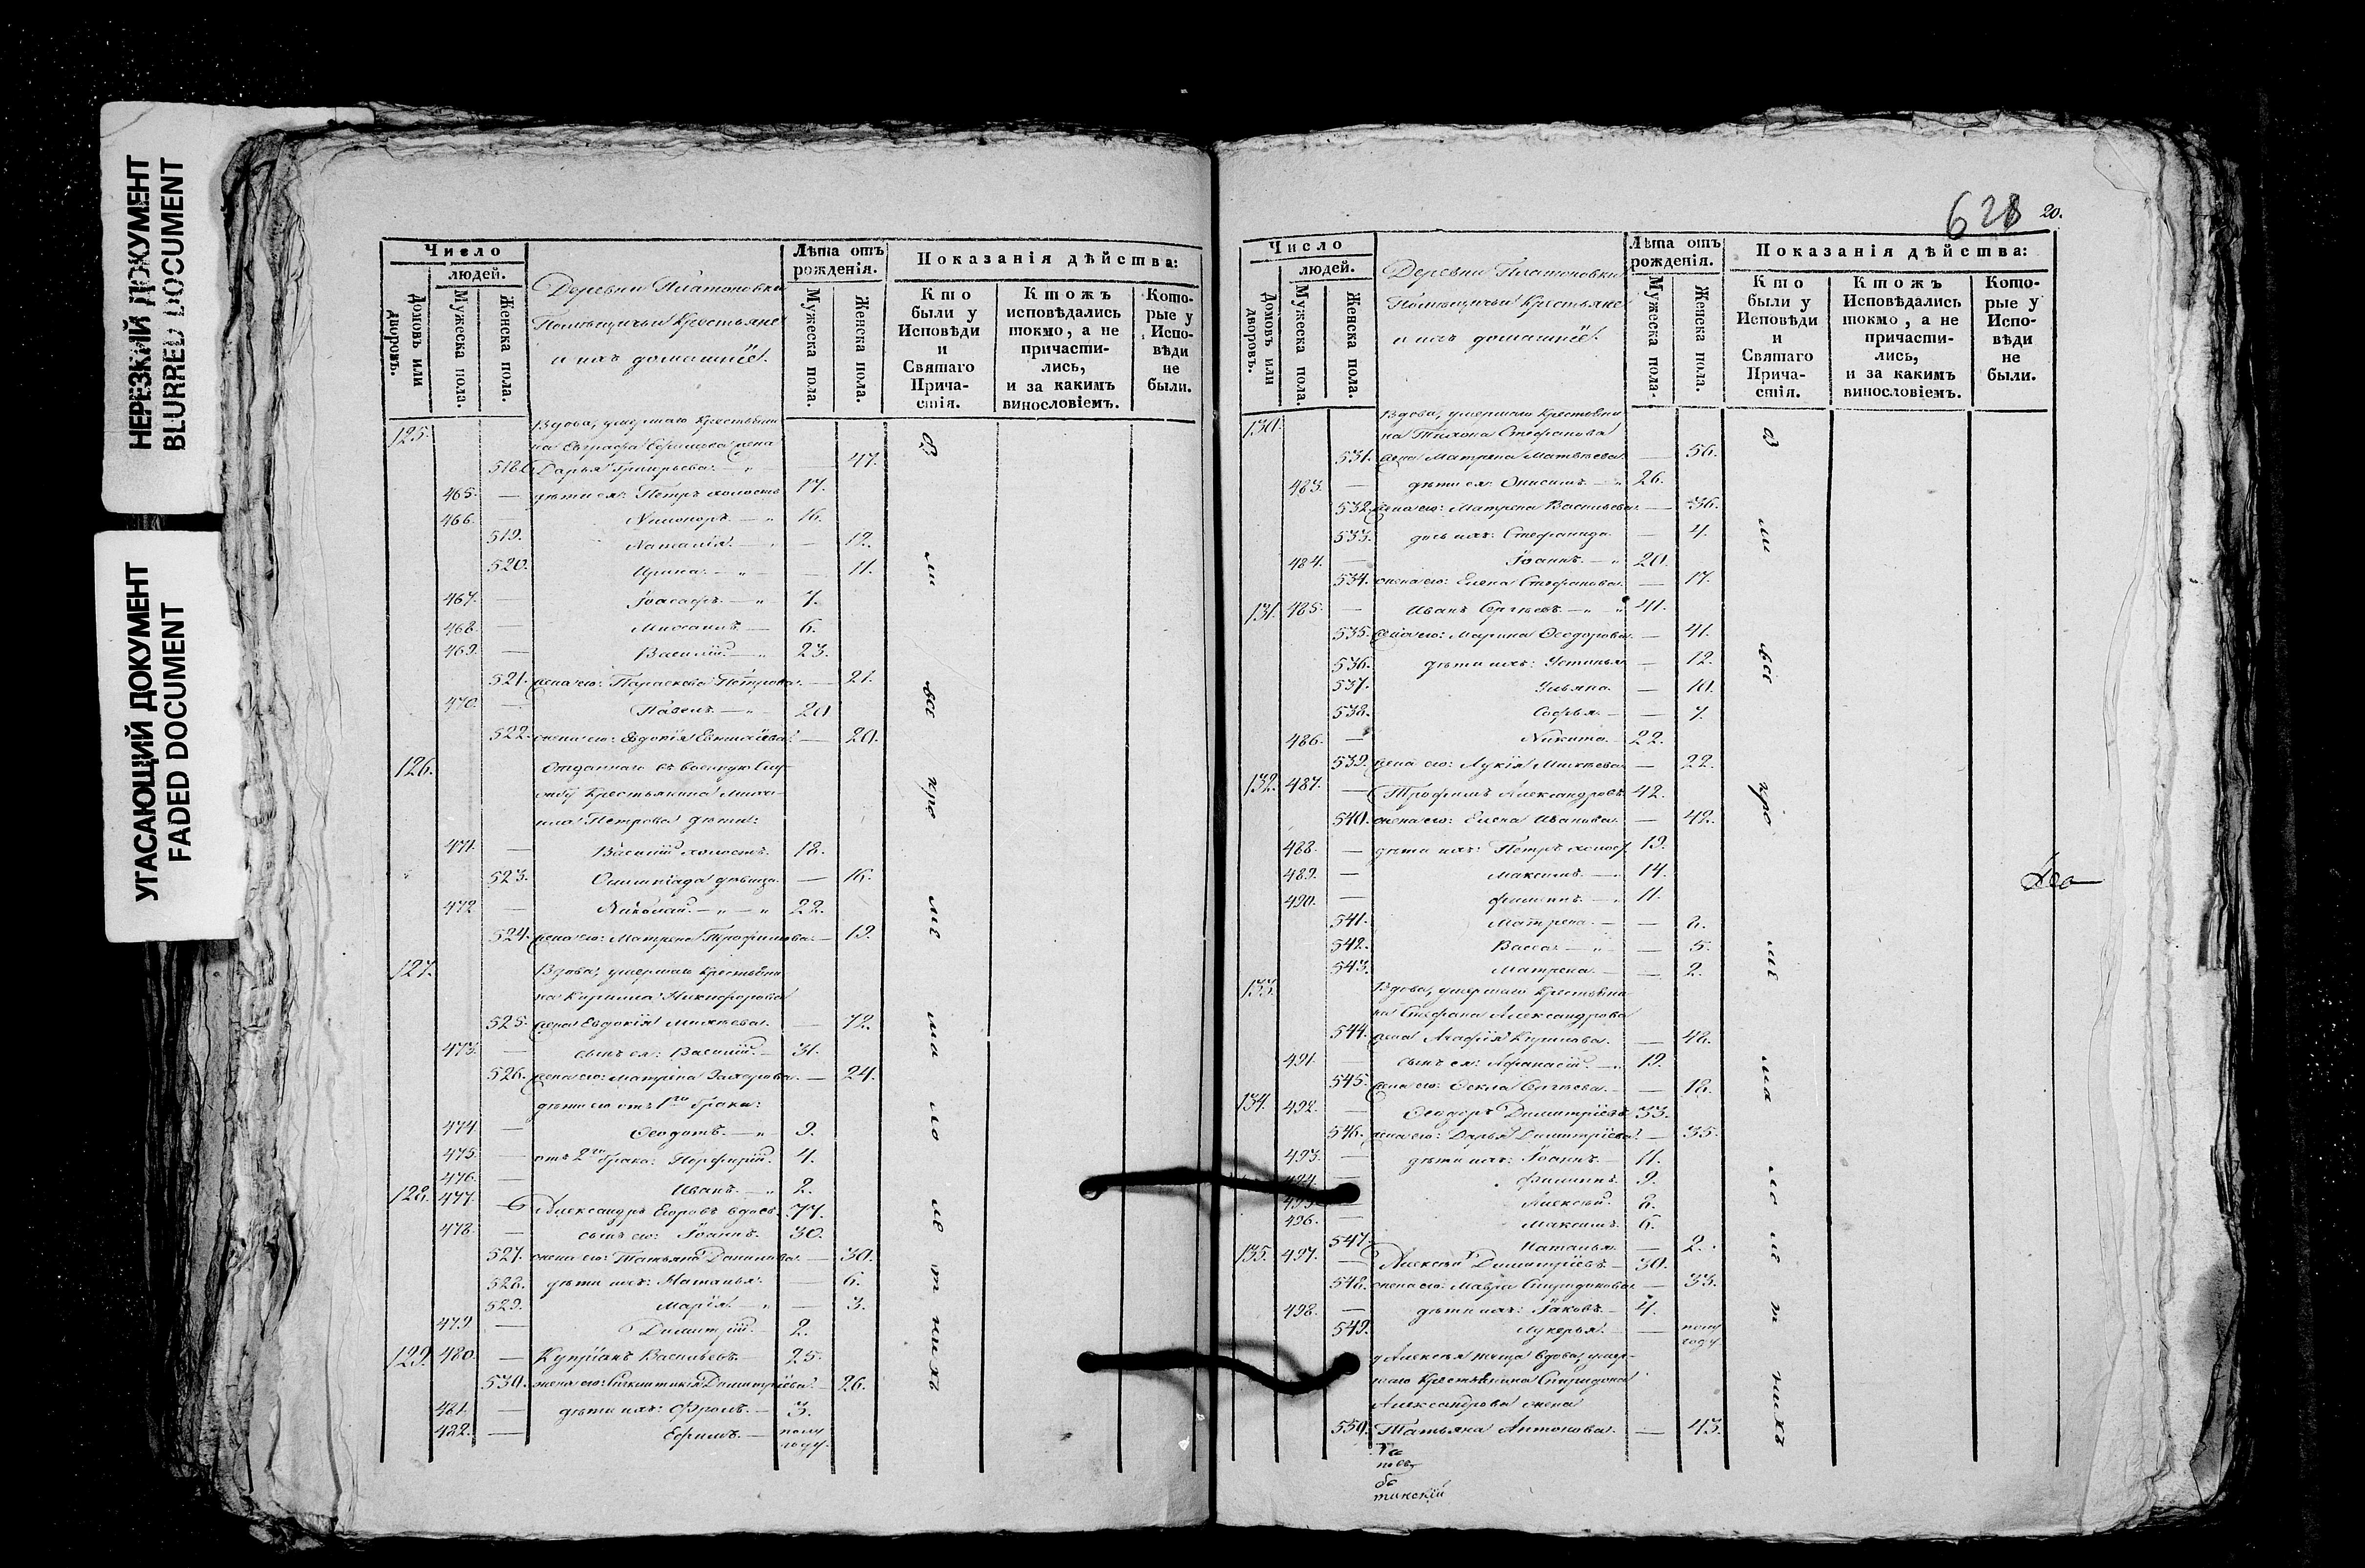 НЕРЕЗКИЙ ДОКУМЕНТ
BLURRED DOCUMENT
УГАСАЮЩИЙ ДОКУМЕНТ
FADED DOCUMENT
Число
людей.
Домовъ или дворовъ.
Мужеска пола.
Женска пола.
Деревни Платоновки
Помѣщичьи Крестьяне
и ихъ домашніе.
Лѣта отъ рожденія.
Мужеска пола.
Женска пола.
Показанія дѣйства:
Кто были у Исповѣди и Святаго Прича-стія.
Ктожъ исповѣдались токмо, а не причасти-лись, и за какимъ винословіемъ.
Кото-рые у Испо-вѣди не были.
125. Вдова, умершаго крестьяни
на Евграфа Ефимова жена
518. Дарья Григорьева. — 47.
465. — дѣти ея: Петръ холостъ 17.
466. — Никоноръ. — 16.
519. Наталія. — 12.
520. Ирина. — 11.
467. — Іоасафъ. — 7.
468. — Мисаилъ. — 6.
469. — Василій. — 23.
521. жена его: Параскева Петрова. — 21.
470. — Павелъ. — 20
522. жена его: Евдокія — 20.
126. Отданнаго въ военную Слу
жбу Крестьянина Миха
ила Петрова дѣти:
471. — Василій холостъ. 18.
523. Олимпіада дѣвица. — 16.
472 — Николай. — 22.
524. жена его: Матрена Трофимова. — 19.
127. Вдова, умершаго крестьяни
на Кирилла Никифорова
525. жена Евдокія Михѣева. — 72.
473. — сынъ ея: Василій. — 31.
526. жена его: Матрена Захарова. — 24.
дѣти его отъ 1го брака:
474. — Ѳеодотъ. — 9.
475. — отъ 2го брака: Порфирій. 4.
476. — Иванъ. — 2.
128. 477. — Александръ Егоровъ вдовъ. 77.
478. — сынъ его: Іоаннъ. 30.
527. жена его: Татьяна Данилова. — 30.
528. дѣти ихъ: Наталья. — 6.
529. Марія. — 3.
479 — Димитрій. — 2.
129. 480. — Купріанъ Васильевъ. — 25.
530. жена его: Димитріева. — 26.
481. — дѣти ихъ: Фролъ. — 3.
482. — Ефимъ. — полу
году.
628 20.
Число
людей.
Домовъ или дворовъ.
Мужеска пола.
Женска пола.
Деревни Платоновки
Помѣщичьи Крестьяне
и ихъ домашніе.
Лѣта отъ рожденія.
Мужеска пола.
Женска пола.
Показанія дѣйства:
Кто были у Исповѣди и Святаго Прича-стія.
Ктожъ Исповѣдались токмо, а не причасти-лись, и за какимъ винословіемъ.
Кото-рые у Испо-вѣди не были.
130. Вдова, умершаго крестьяни
на Тихона Стефанова
531. жена Матрена Матвѣева. — 56.
483. — дѣти ея: Онисимъ. — 26.
532. жена его: Матрена Васильева. — 36.
533. дочь ихъ: Стефанида. — 4.
484. — Іоаннъ. — 20.
534. жена его: Елена Стефанова. — 17.
131. 485. — Иванъ Сергѣевъ. — 41.
535. жена его: Марина Ѳеодорова. — 41.
536. дѣти ихъ: Устинья — 12.
537. Ульяна. — 10.
538. Софья. — 7.
486. — Никита. — 22.
539. жена его: Лукія Михѣева. — 22.
132. 487. — Трофимъ Александровъ. 42.
540. жена его: Елена Иванова. — 42.
488. — дѣти ихъ: Петръ холост. 19.
489. — Максимъ. — 14.
490. — Филиппъ. — 11.
541. Матрена. — 8.
542. Васса. — 5.
543. Матрена. — 2.
133. Вдова, умершаго крестьяни
на Стефана Александрова
544. жена Агафія Карпова. — 48.
491. — сынъ ея: Афанасій. — 19.
545. жена его: Ѳекла Сергѣева. — 18.
134. 492. — Ѳеодоръ Димитріевъ 33.
546. жена его: Дарья Димитріева. — 35.
493. — дѣти ихъ: Іоаннъ. — 11.
494. — Филиппъ. 9.
495. — Алексѣй. 8.
496. — Максимъ. 6.
547. Наталья. — 2.
135. 497. — Алексѣй Димитріевъ. — 30.
548. жена его: Мавра Спиридонова. — 33.
498. — дѣти ихъ: Іаковъ. — 4.
549. Лукерья. — полу
году
у Алексѣя теща вдова, умер-
шаго Крестьянина Спиридона
Александрова жена
550. Татьяна Антонова. — 43.